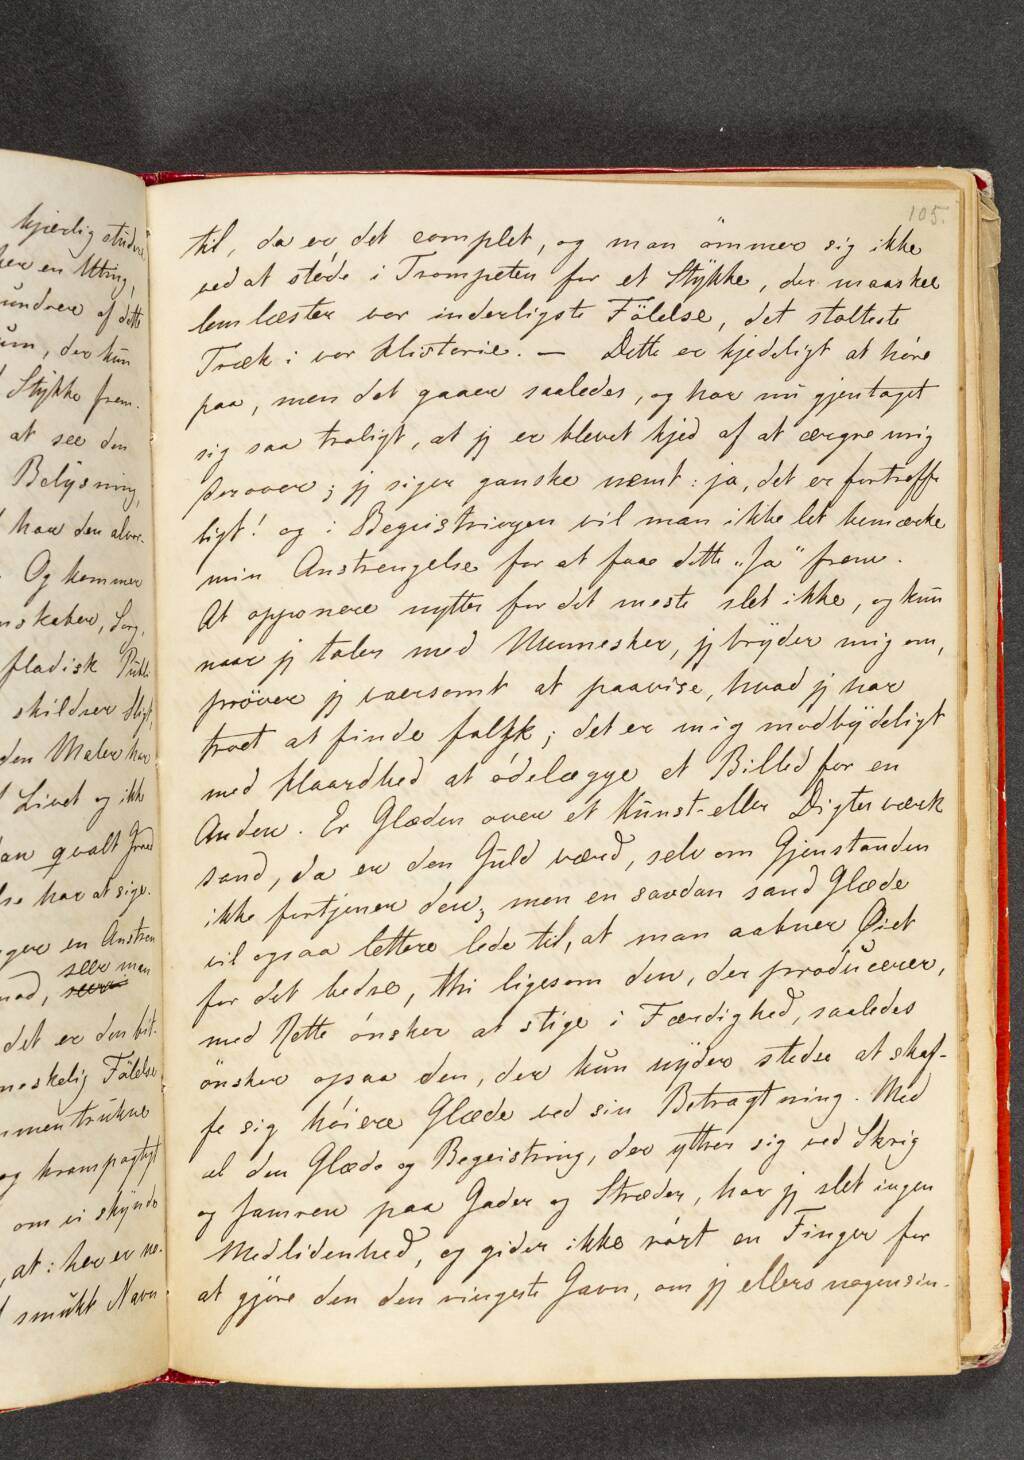 kjærlig studere
er en Uting,
undrer af dette
um, der kun
Stykke frem-
at see den
Belysning,
har den alvor-
Og kommer
nskaber, Sorg,
fladisk Publi
skildrer Sligt,
den Maler har
Livet og ikke
an qvalt Graad
lse har at sige.
ger en Anstren
nad, seer man
det er den bit-
neskelig Følelse
mmentrukne
og krampagtigt
om vi skynde
, at: her er no-
smukt Navn
105.
til, da er det complet, og man ömmer sig ikke
ved at støde i Trompeten for et Stykke, der maaskee
lemlæster vor inderligste Følelse, det stolteste
Træk i vor Historie. — Dette er kjedeligt at høre
paa, men det gaaer saaledes, og har nu gjentaget
sig saa troligt, at jeg er blevet kjed af at ærgre mig
derover; jeg siger ganske nemt: ja, det er fortræffe
ligt! og i Begeistringen vil man ikke let bemærke
min Anstrengelse for at faae dette „Ja" frem.
At opponere nytter for det meste slet ikke, og kun
naar jeg taler med Mennesker, jeg bryder mig om,
prøver jeg varsomt at paavise, hvad jeg har
troet at finde falsk; det er mig modbydeligt
med Haardhed at ødelægge et Billed for en
Anden. Er Glæden over et Kunst- eller Digterværk
sand, da er den Guld værd, selv om Gjenstanden
ikke fortjener den; men en saadan sand Glæde
vil ogsaa lettere lede til, at man aabner Øiet
for det bedre, thi ligesom den, der producerer,
med Rette ønsker at stige i Færdighed, saaledes
ønsker ogsaa den, der kun nyder stedse at skaf-
fe sig høiere Glæde ved sin Betragtning. Med
al den Glæde og Begeistring, der yttrer sig ved Skrig
og Jamren paa Gader og Stræder, har jeg slet ingen
Medlidenhed, og gider ikke rørt en Finger for
at gjøre den den ringeste Gavn, om jeg ellers nogensin-